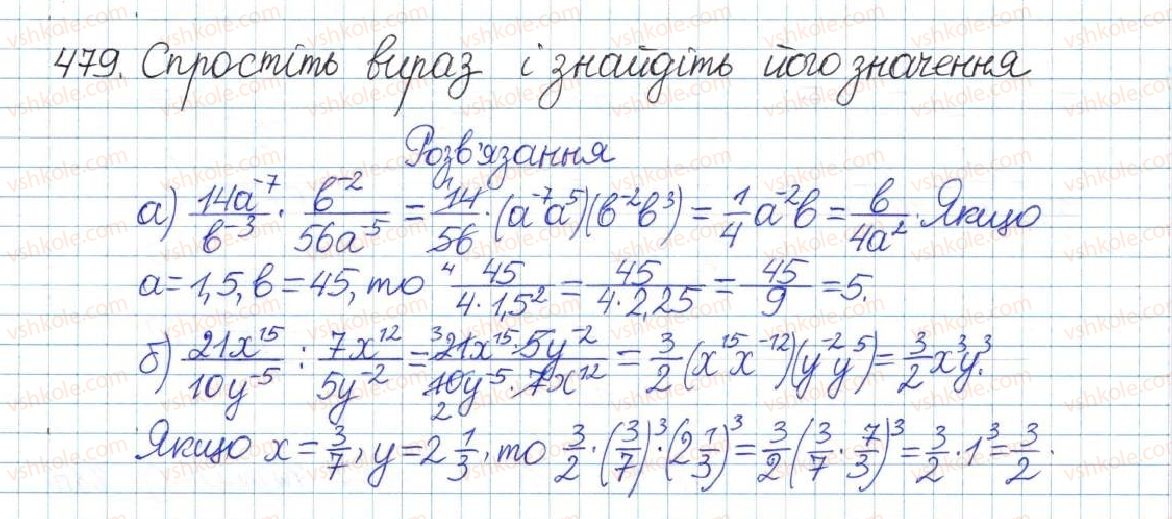 479. Спростіть вираз і знайдіть його значення
Розв'язання
а) 14a⁻⁷/b⁻³ · b⁻²/56a⁻⁵ = 14/56 · (a⁻⁷a⁵)(b⁻²b³) = 1/4 a⁻²b = b/4a². Якщо
a = 1,5, b = 45, то 45/(4·1,5²) = 45/(4·2,25) = 45/9 = 5.
б) 21x¹⁵/10y⁻⁵ : 7x¹²/5y⁻² = (21x¹⁵·5y⁻²)/(10y⁻⁵·7x¹²) = 3/2 (x¹⁵x⁻¹²)(y⁻²y⁵) = 3/2 x³y³.
Якщо x = 3/7, y = 2 1/3, то 3/2 · (3/7)³ · (2 1/3)³ = 3/2 (3/7 · 7/3)³ = 3/2 · 1³ = 3/2.